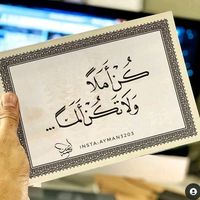 كُنْ أَمَلاً
وَلَا تَكُنْ أَلَمًا...
INSTA:AYMAN3203